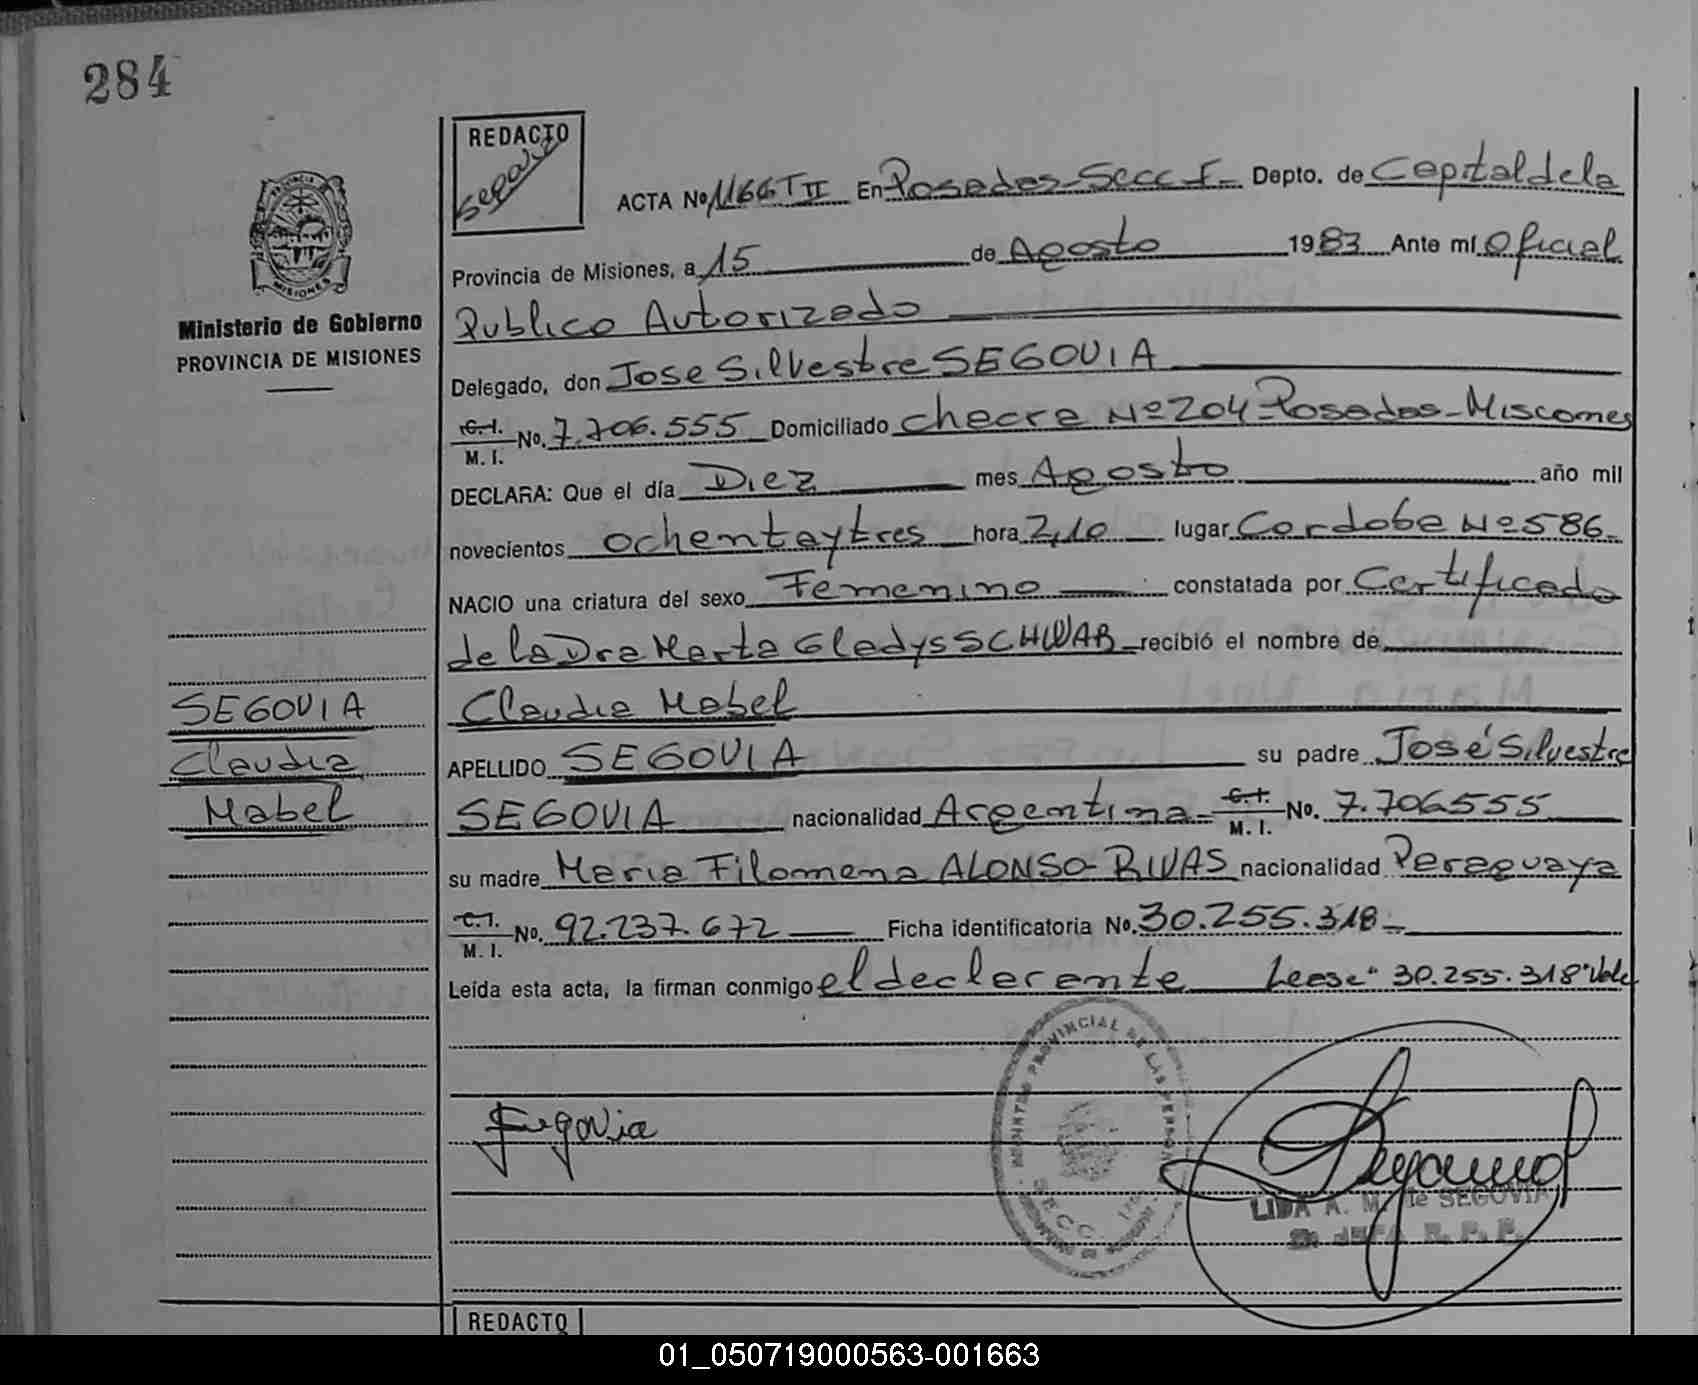 284
REDACTO
ACTA No 1166 T II En Posadas-Secc I- Depto. de Capital de la
Provincia de Misiones, a 15 de Agosto 1983 Ante mí Oficial
Publico Autorizado
Delegado, don Jose Silvestre SEGOVIA
C.I. M.I. No. 7.706.555 Domiciliado Chacra Nº 204-Posadas-Misiones
DECLARA: Que el día Diez mes Agosto año mil
novecientos ochenta y tres hora 2,10 lugar Cordoba Nº 586-
NACIO una criatura del sexo Femenino constatada por Certificado
de la Dra Marta Gladys SCHWAR recibió el nombre de
Claudia Mabel
APELLIDO SEGOVIA su padre José Silvestre
SEGOVIA nacionalidad Argentina- C.I. M.I. No. 7.706555
su madre Maria Filomena ALONSO-RIVAS nacionalidad Paraguaya
C.I. M.I. No. 92.237.672 Ficha identificatoria No. 30.255.318-
Leída esta acta, la firman conmigo el declarante Lease "30.255.318" Vale
Ministerio de Gobierno
PROVINCIA DE MISIONES
SEGOVIA
Claudia
Mabel
PROVINCIA
MISIONES
PROVINCIAL DE LAS PERSONAS
SECC.
Segovia
LIDA A. M. de SEGOVIA
REDACTO
01_050719000563-001663